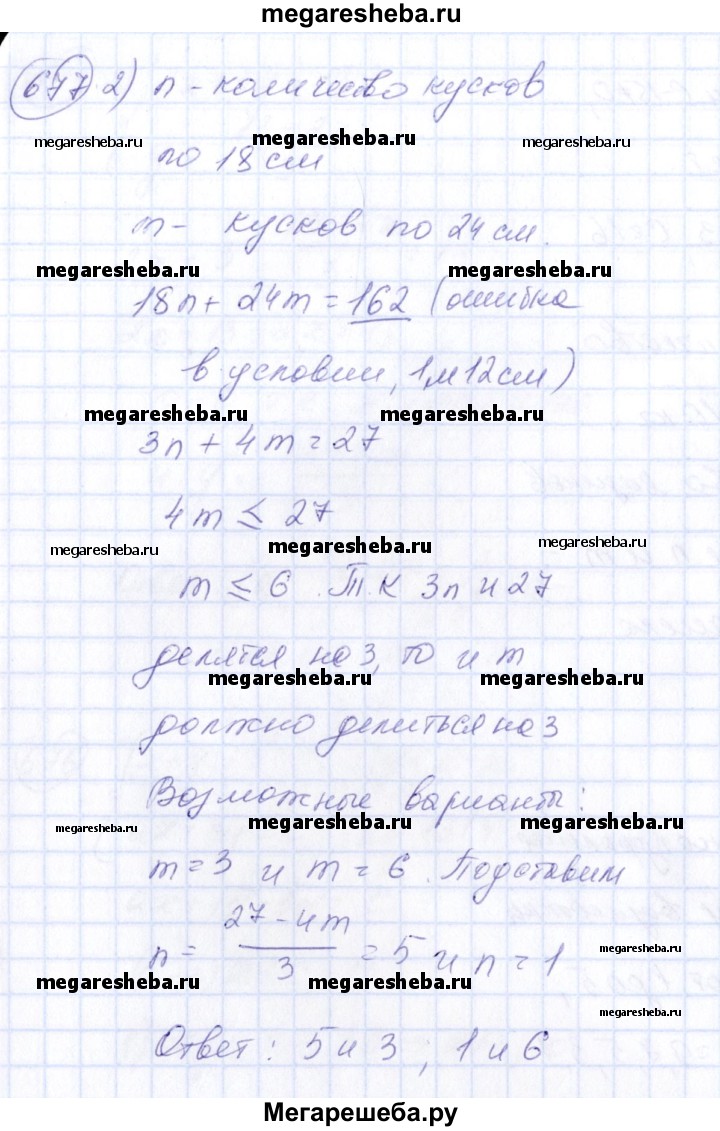 megaresheba.ru
677 2) n - количество кусков
megaresheba.ru megaresheba.ru megaresheba.ru
по 18 см
m - кусков по 24 см.
megaresheba.ru megaresheba.ru
18n + 24m = 162 (ошибка
в условии, 1м 12см)
megaresheba.ru megaresheba.ru
3n + 4m = 27
4m ≤ 27
megaresheba.ru megaresheba.ru megaresheba.ru
m ≤ 6. Т.к 3n и 27
делятся на 3, то и m
megaresheba.ru megaresheba.ru
должно делиться на 3
Возможные варианты:
megaresheba.ru megaresheba.ru megaresheba.ru
m = 3 и m = 6. Подставим
n = (27 - 4m)/3 = 5 и n = 1
megaresheba.ru
megaresheba.ru megaresheba.ru
Ответ: 5 и 3 ; 1 и 6
Мегарешеба.ру